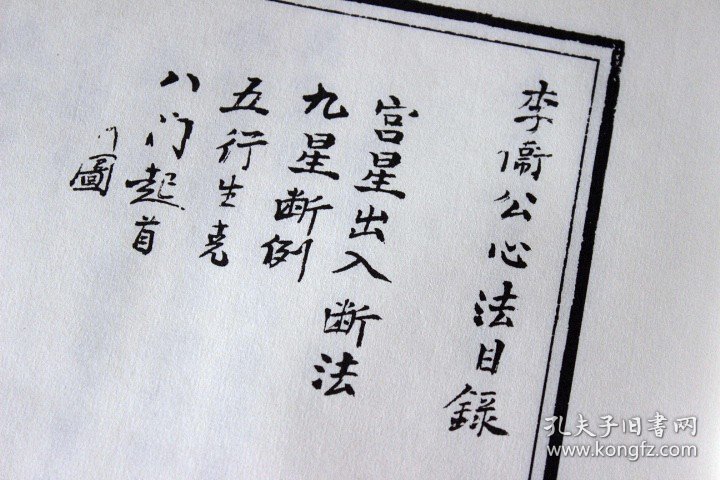 李衛公心法目錄
宫星出入断法
九星断例
五行生克
八门起首
圖
孔夫子旧書网
www.kongfz.com